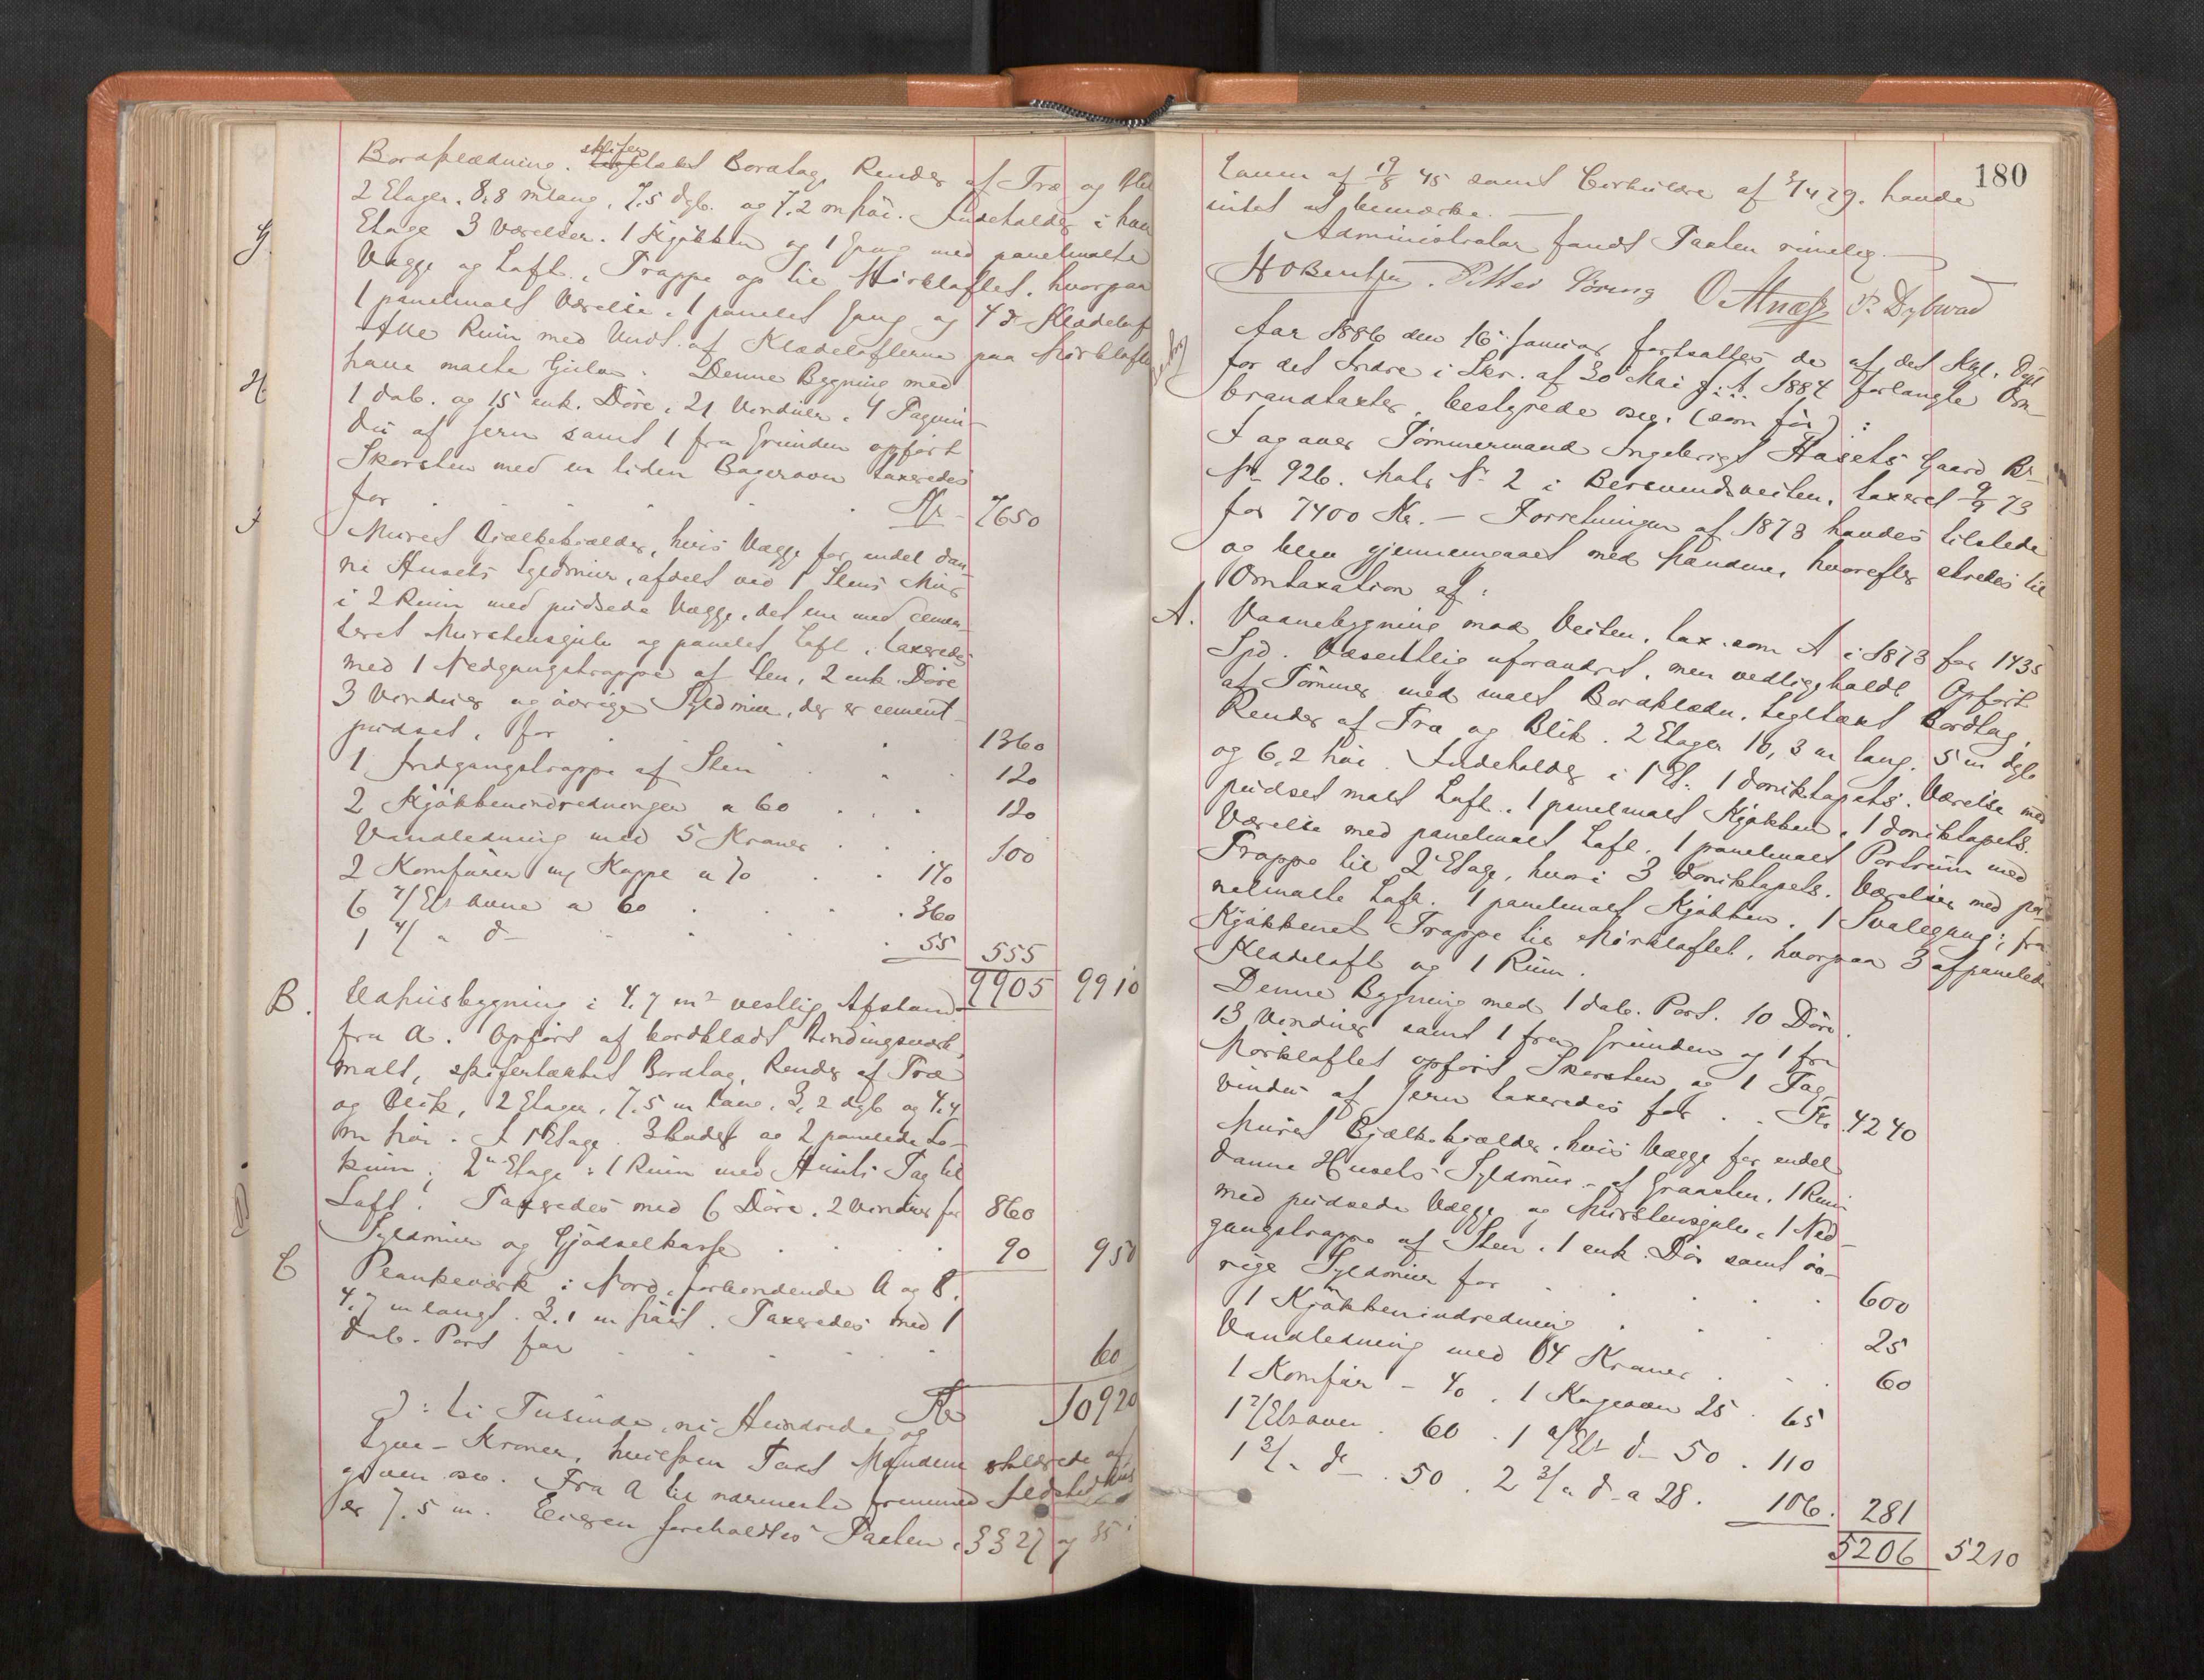 Bordklædning. skifertækt Bordtag, Render af Træ og Blik
2 Etager. 8,8 m lang, 7,5 dyb. og 7,2 m höi. Indeholder i hver
Etage 3 Værelser. 1 Kjökken og 1 Gang med panelmalte
Vægge og Loft, Trappe op til Mörkloftet, hvorpaa
1 panelmalt Værelse, 1 panelet Gang og 4 do Klædeloft
Alle Rum med Undt. af Klædelofterne paa Mörkloftet
have malte Gulve. Denne Bygning med
1 dob. og 15 enk. Döre, 21 Vinduer, 4 Tagvin-
du af Jern samt 1 fra Grunden opfört
Skorsten med en liden Bagerovn taxeredes
for . . . . . Kr 7650
Muret Bjælkekjælder, hvis Vægge for endel dan-
ne Husets Syldmur, afdelt ved 1 Stens Mur
i 2 Rum med pudsede Vægge, det ene med cemen-
teret Murstensgulv og panelet Loft, taxeredes
med 1 Nedgangstrappe af Sten, 2 enk. Döre
3 Vinduer og övrige Syldmur, der er cement-
pudset, for . . 1360
1 Indgangstrappe af Sten . . . 120
2 Kjökkenindredninger a 60 . . . 120
Vandledning med 5 Kraner . . . 100
2 Komfurer m/ Kappe a 70 . . 140
6 2/Ets Ovne a 60 . . . . 360
1 4/ " do . . . . 55 555
9905 9910
B. Udhusbygning i 4,7 m² vestlig Afstand
fra A. Opfört af bordklædt Bindingsværk,
malt, skifertækket Bordtag, Render af Træ
og Blik, 2 Etager, 7,5 m lang, 3,2 dyb og 4,4
m höi. I 1 Etage 3 Boder og 2 panelede Lo-
kum; 2n Etage: 1 Rum med Husets Tag til
Loft. Taxeredes med 6 Döre, 2 Vinduer for 860
Syldmur og Gjödselkasse . . . . 90 950
C Plankeværk i Nord, forbindende A og B.
4,7 m langt. 3,1 m höit. Taxeredes med 1
dob. Port for . . . . . 60
Kr 10920
ɔ: ti Tusinde, ni Hundrede og
tyve - Kroner, hvilken Taxt Mændene erklærede af-
given osv. Fra A til nærmeste fremmed Ildsted
er 7,5 m. Eieren foreholdtes Taxten, §§ 27 og 35 i
180
Loven af 19/8 45 samt Cirkulære af 3/4 79. havde
intet at bemærke. —
Administrator fandt Taxten rimelig. —
H O Berntsen. O Alnæss P. Dybwad
Aar 1886 den 16 Januar fortsattes de af det Kgl. Dept
for det Indre i Skr. af 30 Mai f. A. 1884 forlangte Om-
brandtaxter, bestyrede osv. (som för) :
I og over Tömmermand Ingebrigt Hasets Gaard Br.
No 926. Matr. No 2 i Bersvendsveiten, taxeret 9/9 73
for 7400 Kr. — Forretningen af 1873 havdes tilstede
og blev gjennemgaaet med Mændene, hvorefter skredes til
Omtaxation af:
A. Vaanebygning mod Veiten, tax. som A i 1873 for 1435
Spd. Væsentlig uforandret, men vedligeholdt. Opfört
af Tömmer med malt Bordklædn. tegltækt Bordtag,
Render af Træ og Blik. 2 Etager 10,3 m lang. 5 m dyb
og 6,2 höi. Indeholder i 1 Et. 1 doniktapets. Værelse med
pudset malt Loft. 1 panelmalt Kjökken, 1 doniktapets.
Værelse med panelmalt Loft. 1 panelmalt Portrum med
Trappe til 2 Etage, hvori 3 doniktapets. Værelser med pa-
nelmalte Loft. 1 panelmalt Kjökken. 1 Svalegang; fra
Kjökkenet Trappe til Mörkloftet, hvorpaa 3 afpanelede
Klædeloft og 1 Rum.
Denne Bygning med 1 dob. Port. 10 Döre.
13 Vinduer samt 1 fra Grunden og 1 fra
Mörkloftet opfört Skorsten og 1 Tag-
vindu af Jern taxeredes for . . Kr. 4240
Muret Bjælkekjælder, hvis Vægge for endel
danne Husets Syldmur - af Graasten, 1 Rum
med pudsede Vægge og Murstensgulv, 1 Ned-
gangstrappe af Sten. 1 enk. Dör samt öv-
rige Syldmur for . . . . . 600
1 Kjökkenindredning . . . 25
Vandledning med 4 Kraner . . . 60
1 Komfur - 40. 1 Kogeovn 25 . 65
1 2/Ets ovn . 60 . 1 4/Ets do 50 . 110
1 3/ " do . 50 . 2 3/ " do a 28. 106. 281
5206 5210